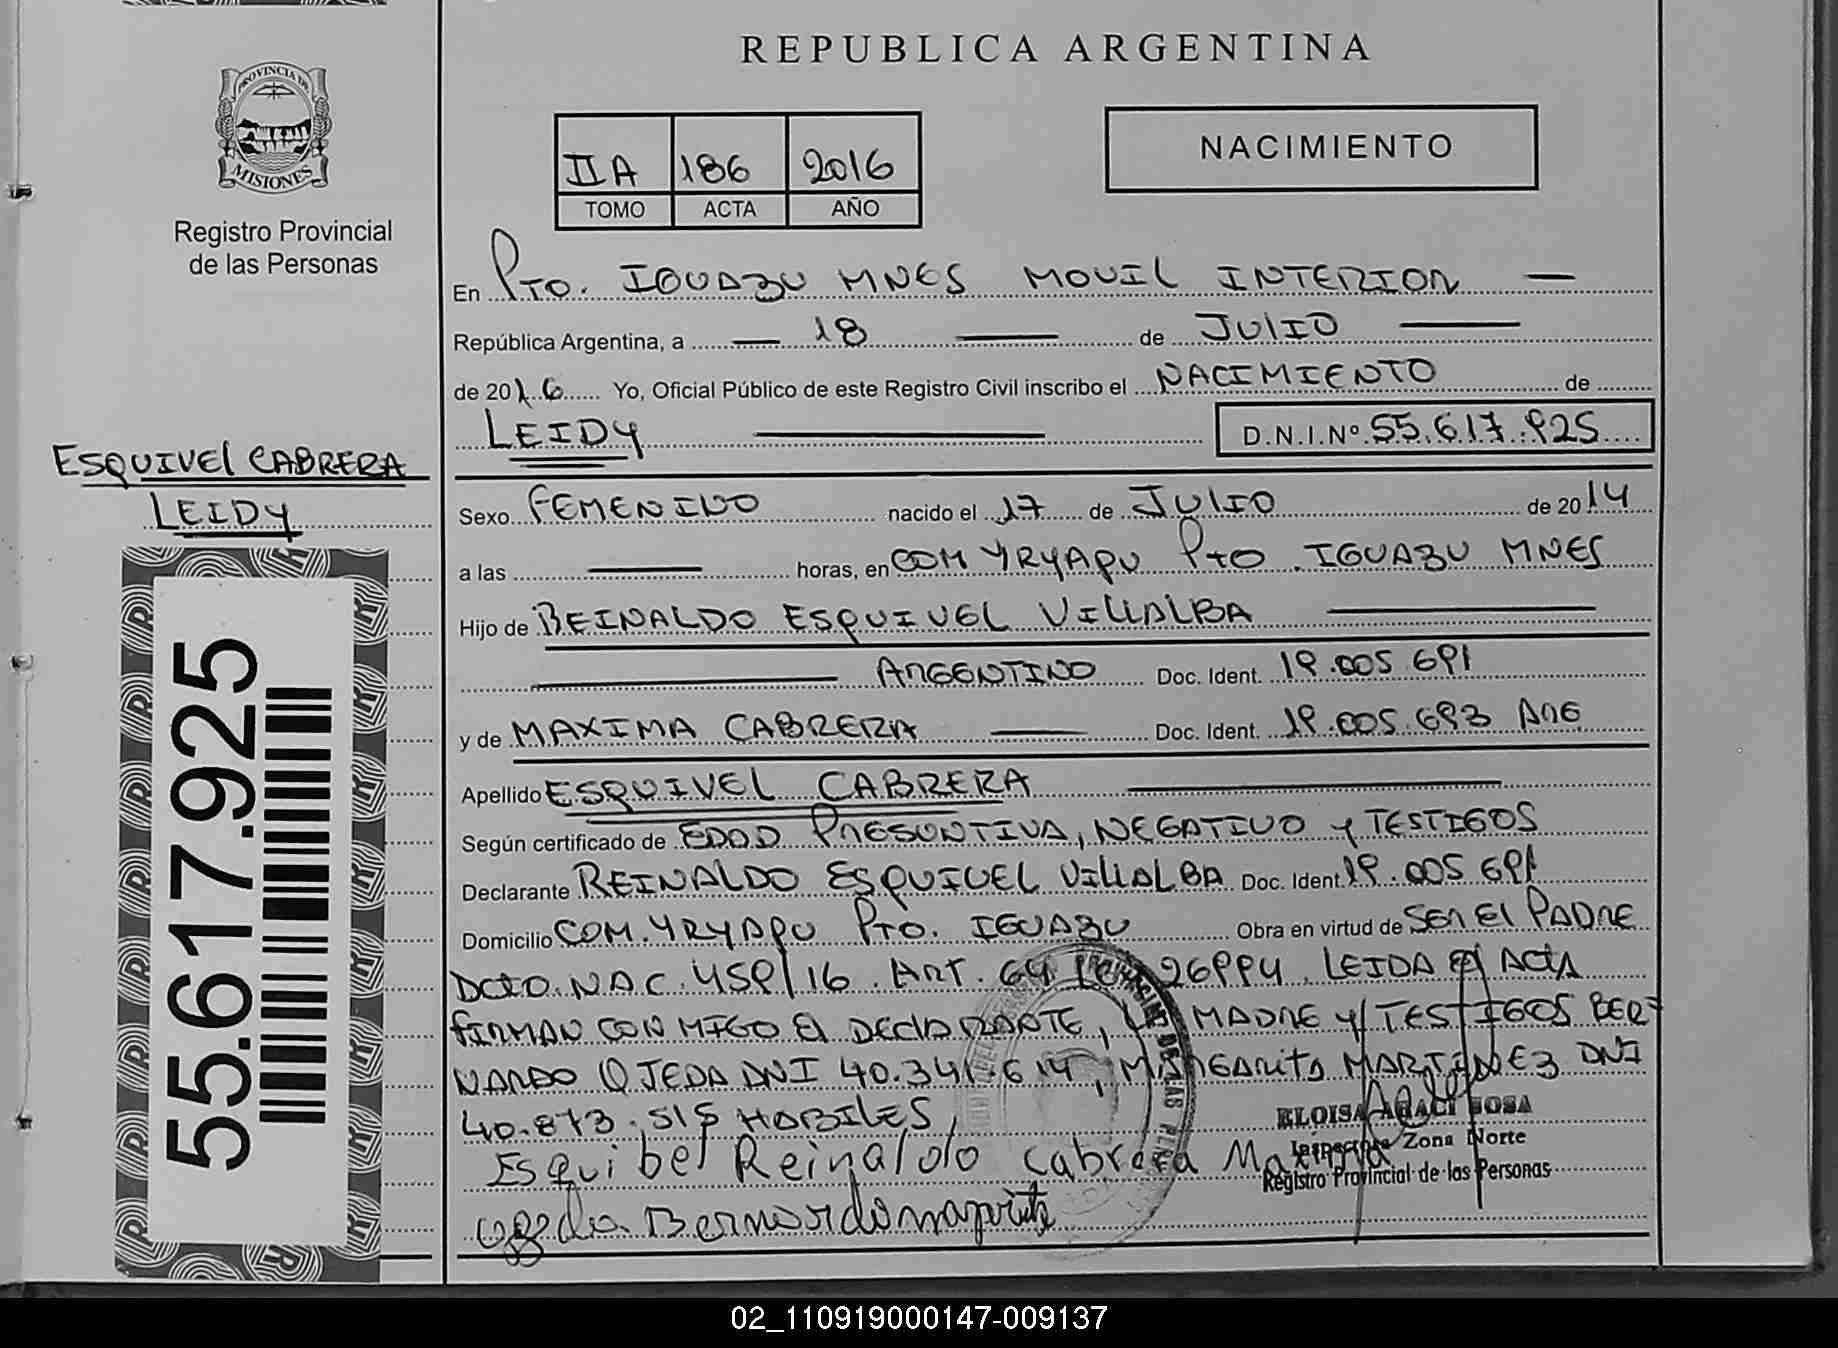 REPUBLICA ARGENTINA
PROVINCIA DE
MISIONES
Registro Provincial
de las Personas
IIA 186 2016
TOMO ACTA AÑO
NACIMIENTO
En Pto. IGUAZU MNES MOVIL INTERIOR
República Argentina, a 18 de JULIO
de 2016 Yo, Oficial Público de este Registro Civil inscribo el NACIMIENTO de
LEIDY D.N.I.Nº 55.617.925
ESQUIVEL CABRERA
LEIDY
55.617.925
Sexo FEMENINO nacido el 17 de JULIO de 2014
a las horas, en COM YRYAPU Pto. IGUAZU MNES
Hijo de REINALDO ESQUIVEL VILLALBA
ARGENTINO Doc. Ident. 19.005.691
y de MAXIMA CABRERA Doc. Ident. 19.005.693 ARG
Apellido ESQUIVEL CABRERA
Según certificado de EDAD PRESUNTIVA, NEGATIVO y TESTIGOS
Declarante REINALDO ESQUIVEL VILLALBA Doc. Ident. 19.005 691
Domicilio COM. YRYAPU Pto. IGUAZU Obra en virtud de SER El PADRE
Dcto. NAC. 459/16. Art. 64 26994. LEIDA El ACTA
FIRMAN CONMIGO El DECLARANTE, LA MADRE y TESTIGOS BER-
NARDO OJEDA DNI 40.341.614, MARGARITA MARTINEZ DNI
40.873.515 HABILES
ELOISA ARACI SOSA
Inspectora Zona Norte
Registro Provincial de las Personas
Esquibel Reinaldo Cabrera Maxima
Bernardo margarita
02_110919000147-009137